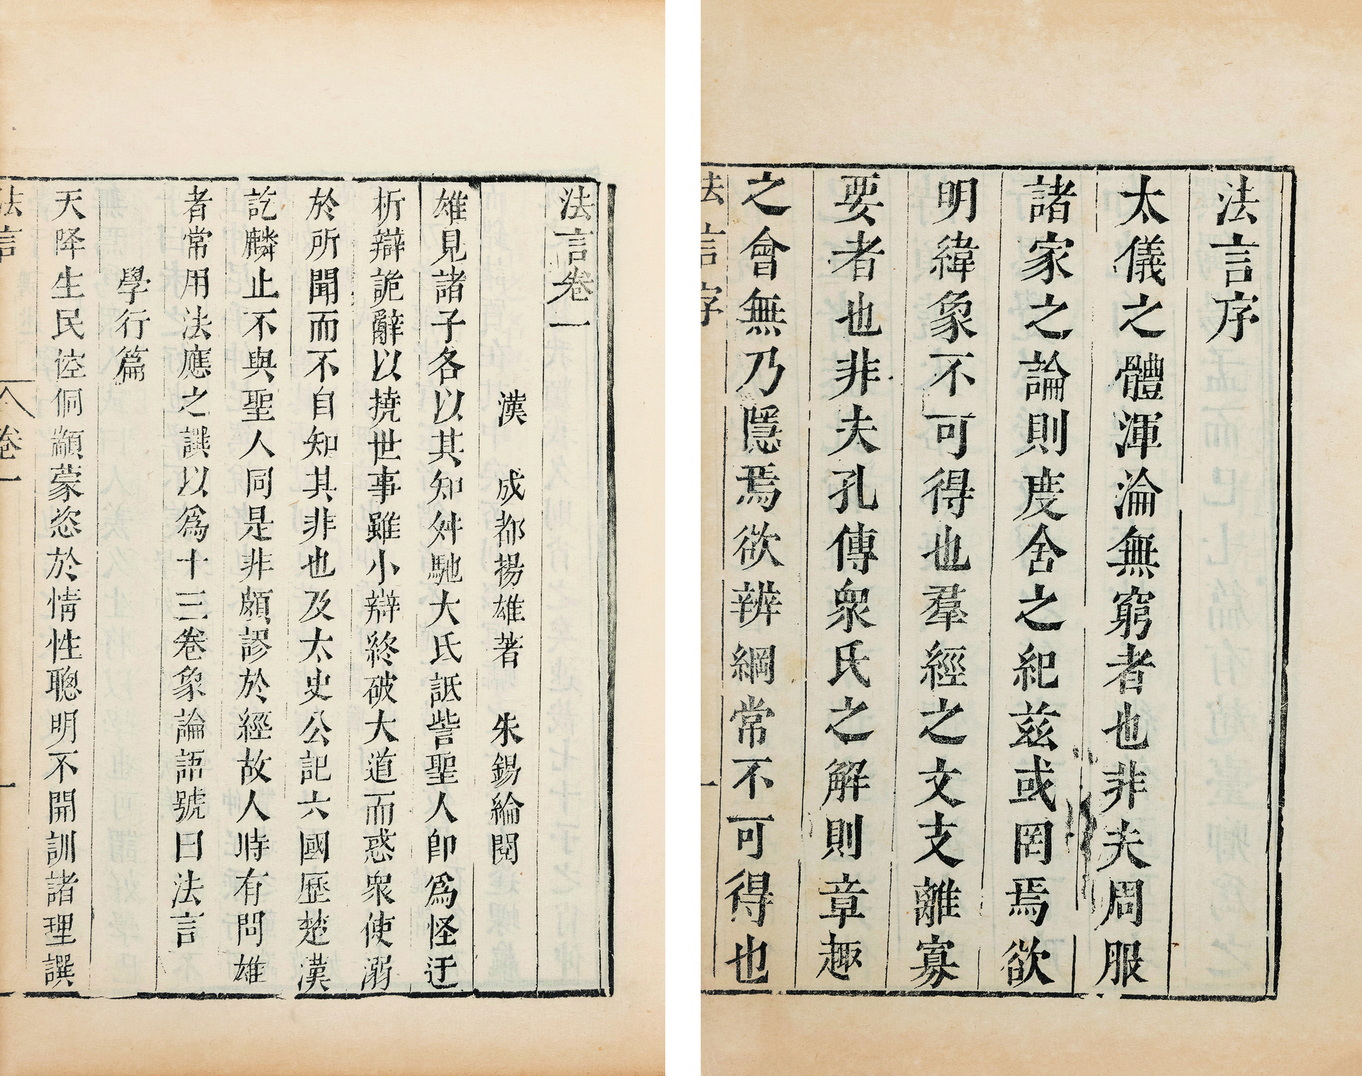 法言序
太儀之體渾淪無窮者也非夫周服
諸家之論則度舍之紀茲或罔焉欲
明緯象不可得也羣經之文支離寡
要者也非夫孔傳衆氏之解則章趣
之會無乃隱焉欲辨綱常不可得也
法言序
法言卷一
漢 成都揚雄著 朱錫綸閱
雄見諸子各以其知舛馳大氐詆訾聖人即爲怪迂
析辯詭辭以撓世事雖小辯終破大道而惑衆使溺
於所聞而不自知其非也及太史公記六國歷楚漢
訖麟止不與聖人同是非頗謬於經故人時有問雄
者常用法應之譔以爲十三卷象論語號曰法言
學行篇
天降生民倥侗顓蒙恣於情性聰明不開訓諸理譔
法言 卷一 一